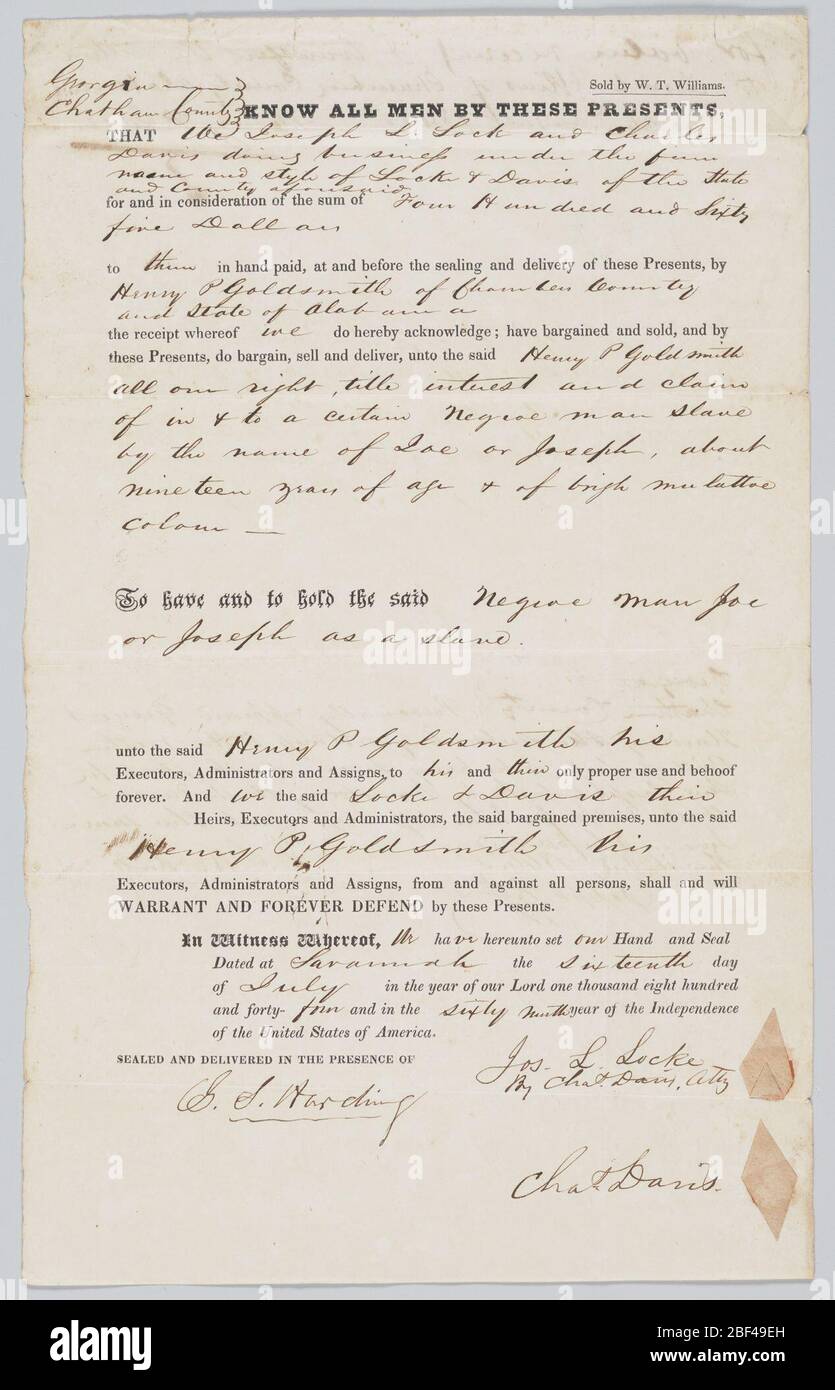 Georgia
Sold by W. T. Williams.
Chatham County
KNOW ALL MEN BY THESE PRESENTS,
THAT We Joseph L. Lock and Charles
Davis doing business under the firm
name and style of Locke & Davis of the State
and County aforesaid
for and in consideration of the sum of Four Hundred and Sixty
five Dollars
to them in hand paid, at and before the sealing and delivery of these Presents, by
Henry P Goldsmith of Chambers County
and State of Alabama
the receipt whereof we do hereby acknowledge; have bargained and sold, and by
these Presents, do bargain, sell and deliver, unto the said Henry P Goldsmith
all our right, title interest and claim
of in & to a certain Negroe man slave
by the name of Joe or Joseph, about
nineteen years of age & of brigh mulattoe
colour —
To have and to hold the said Negroe man Joe
or Joseph as a slave.
unto the said Henry P Goldsmith his
Executors, Administrators and Assigns, to his and their only proper use and behoof
forever. And we the said Locke & Davis their
Heirs, Executors and Administrators, the said bargained premises, unto the said
Henry P. Goldsmith his
Executors, Administrators and Assigns, from and against all persons, shall and will
WARRANT AND FOREVER DEFEND by these Presents.
In Witness Whereof, We have hereunto set our Hand and Seal
Dated at Savannah the sixteenth day
of July in the year of our Lord one thousand eight hundred
and forty-four and in the sixty ninth year of the Independence
of the United States of America.
SEALED AND DELIVERED IN THE PRESENCE OF
Jos. L. Locke
By Chas. Davis, Atty
S. Harding
Chas. Davis.
alamy
Image ID: 2BF49EH
www.alamy.com